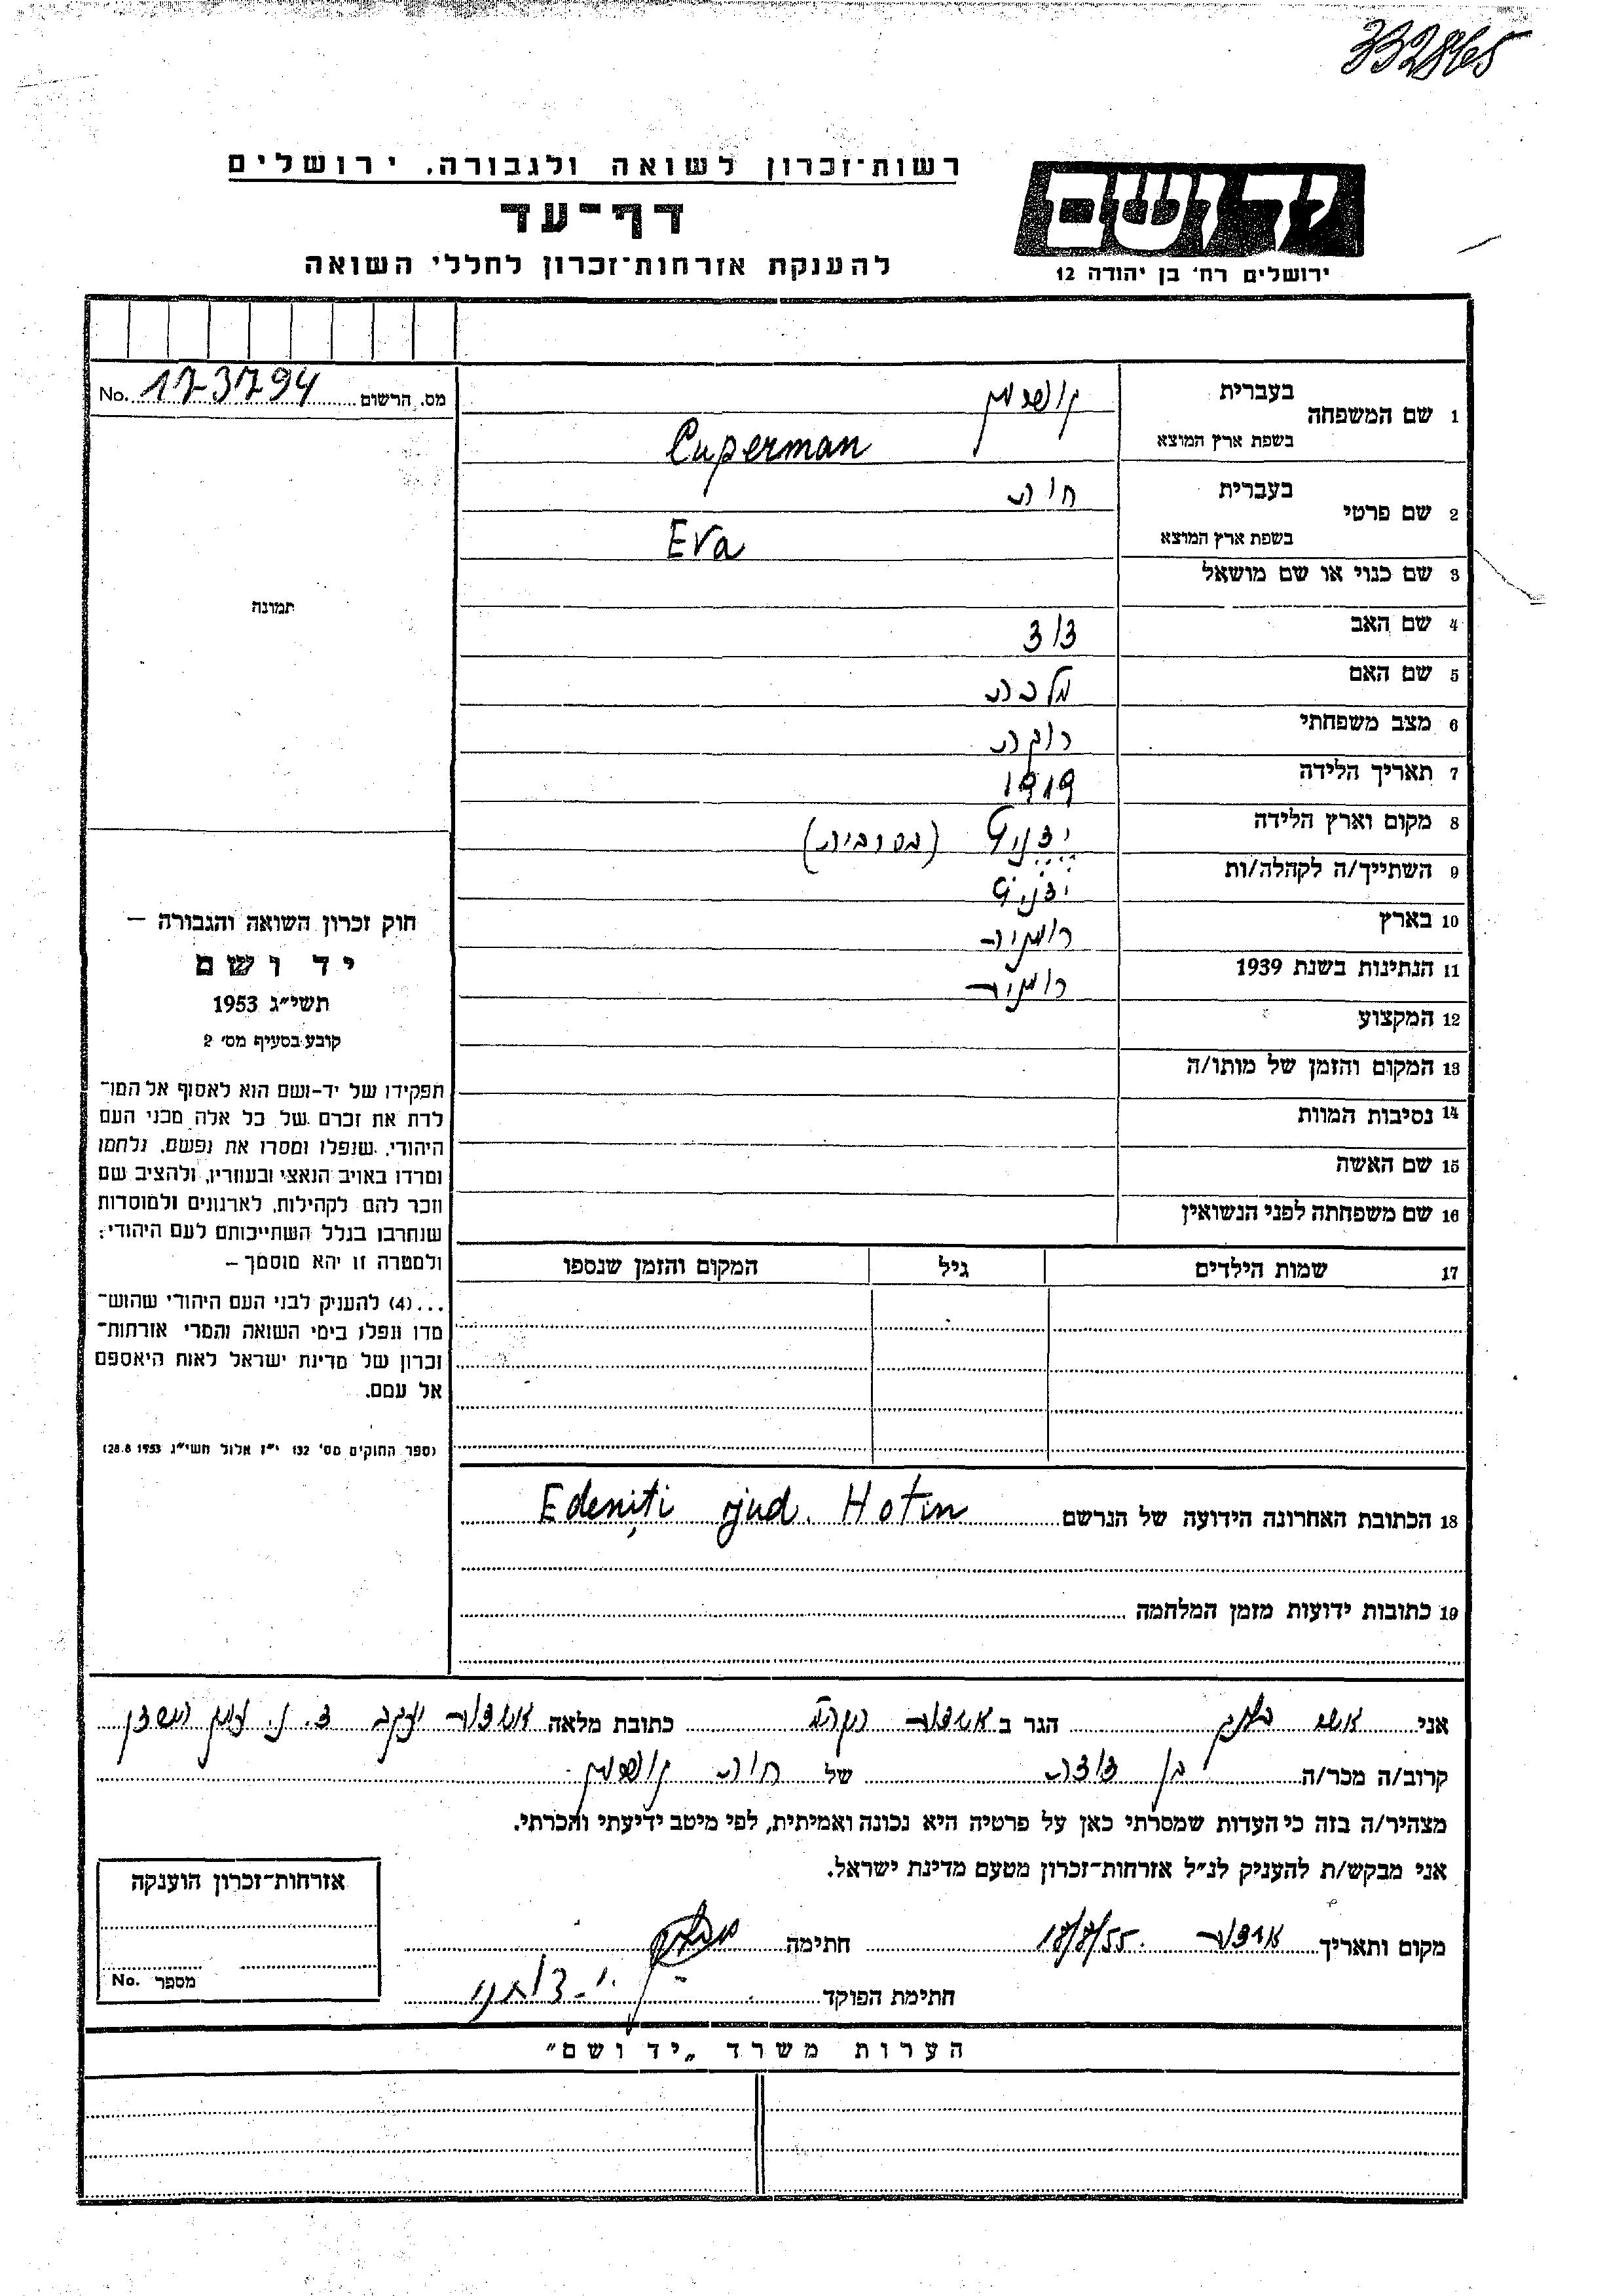 332865
רשות־זכרון לשואה ולגבורה. ירושלים
דף־עד
להענקת אזרחות־זכרון לחללי השואה
ידושם
ירושלים רח׳ בן יהודה 12
No. 173794 מס. הרשום
תמונה
1 שם המשפחה
בעברית קופרמן
בשפת ארץ המוצא Cuperman
2 שם פרטי
בעברית חוה
בשפת ארץ המוצא Eva
3 שם כנוי או שם מושאל
4 שם האב דוד
5 שם האם מלכה
6 מצב משפחתי רוקה
7 תאריך הלידה 1919
8 מקום וארץ הלידה ידניץ (בסרביה)
9 השתייך/ה לקהלה/ות ידניץ
10 בארץ רומניה
11 הנתינות בשנת 1939 רומניה
12 המקצוע
13 המקום והזמן של מותו/ה
14 נסיבות המוות
15 שם האשה
16 שם משפחתה לפני הנשואין
17 שמות הילדים גיל המקום והזמן שנספו
18 הכתובת האחרונה הידועה של הנרשם Edeniți jud. Hotin
19 כתובות ידועות מזמן המלחמה
חוק זכרון השואה והגבורה –
יד ושם
תשי״ג 1953
קובע בסעיף מס׳ 2
תפקידו של יד-ושם הוא לאסוף אל המו־
לדת את זכרם של כל אלה מבני העם
היהודי, שנפלו ומסרו את נפשם, נלחמו
ומרדו באויב הנאצי ובעוזריו, ולהציב שם
וזכר להם לקהילות, לארגונים ולמוסדות
שנחרבו בגלל השתייכותם לעם היהודי;
ולמטרה זו יהא מוסמך –
...(4) להעניק לבני העם היהודי שהוש־
מדו ונפלו בימי השואה והמרי אזרחות־
זכרון של מדינת ישראל לאות היאספם
אל עמם.
(ספר החוקים מס׳ 132 י״ז אלול תשי״ג 28.8.1953)
אני הגר ב כתובת מלאה
קרוב/ה מכר/ה בן דודה של חוה קופרמן
מצהיר/ה בזה כי העדות שמסרתי כאן על פרטיה היא נכונה ואמיתית, לפי מיטב ידיעתי והכרתי.
אני מבקש/ת להעניק לנ״ל אזרחות־זכרון מטעם מדינת ישראל.
מקום ותאריך 18/8/55 חתימה
חתימת הפוקד
אזרחות־זכרון הוענקה
No. מספר
הערות משרד „יד ושם״